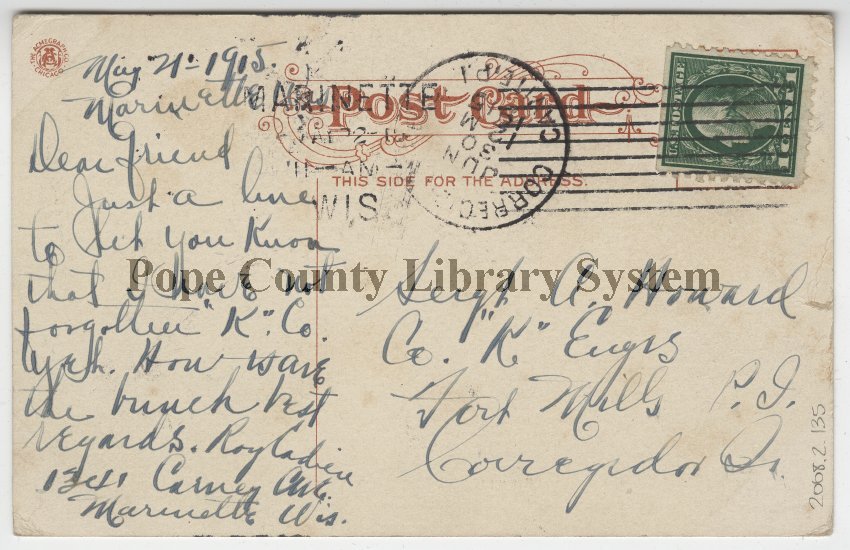 THE ACMEGRAPH CO.
CHICAGO
May 21-1915.
Marinette
Dear friend
Just a line
to let you know
that I have not
forgotten "K" Co.
yeh. How are
the bunch best
regards. Roy
1341 Carney Ave.
Marinette Wis.
Post Card
THIS SIDE FOR THE ADDRESS.
MARINETTE
WIS
CORREGIDOR
P.I.
JUN
U.S. POSTAGE
1 CENT 1
Pope County Library System
Sergt A. Howard
Co. "K" Engrs
Fort Mills P.I.
Corregidor Is.
2008.2.135